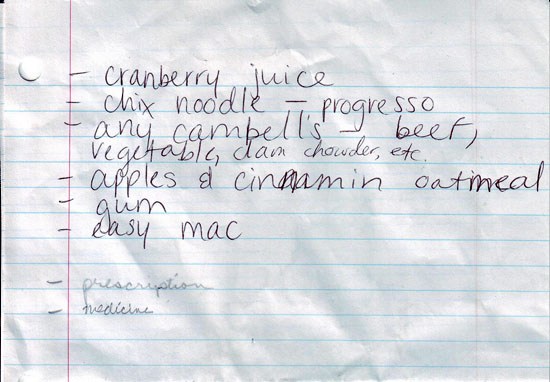 - cranberry juice
- chix noodle - progresso
- any campbell's - beef,
vegetable, clam chowder, etc.
- apples & cinnamin oatmeal
- gum
- easy mac
- prescription
- medicine